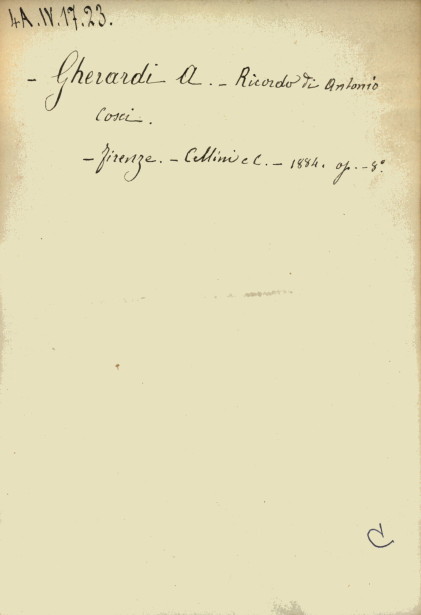 4A.IV.17.23.
- Gherardi A. - Ricordo di Antonio
Cosci.
- Firenze. - Cellini e C. - 1884. op. - 8°.
C